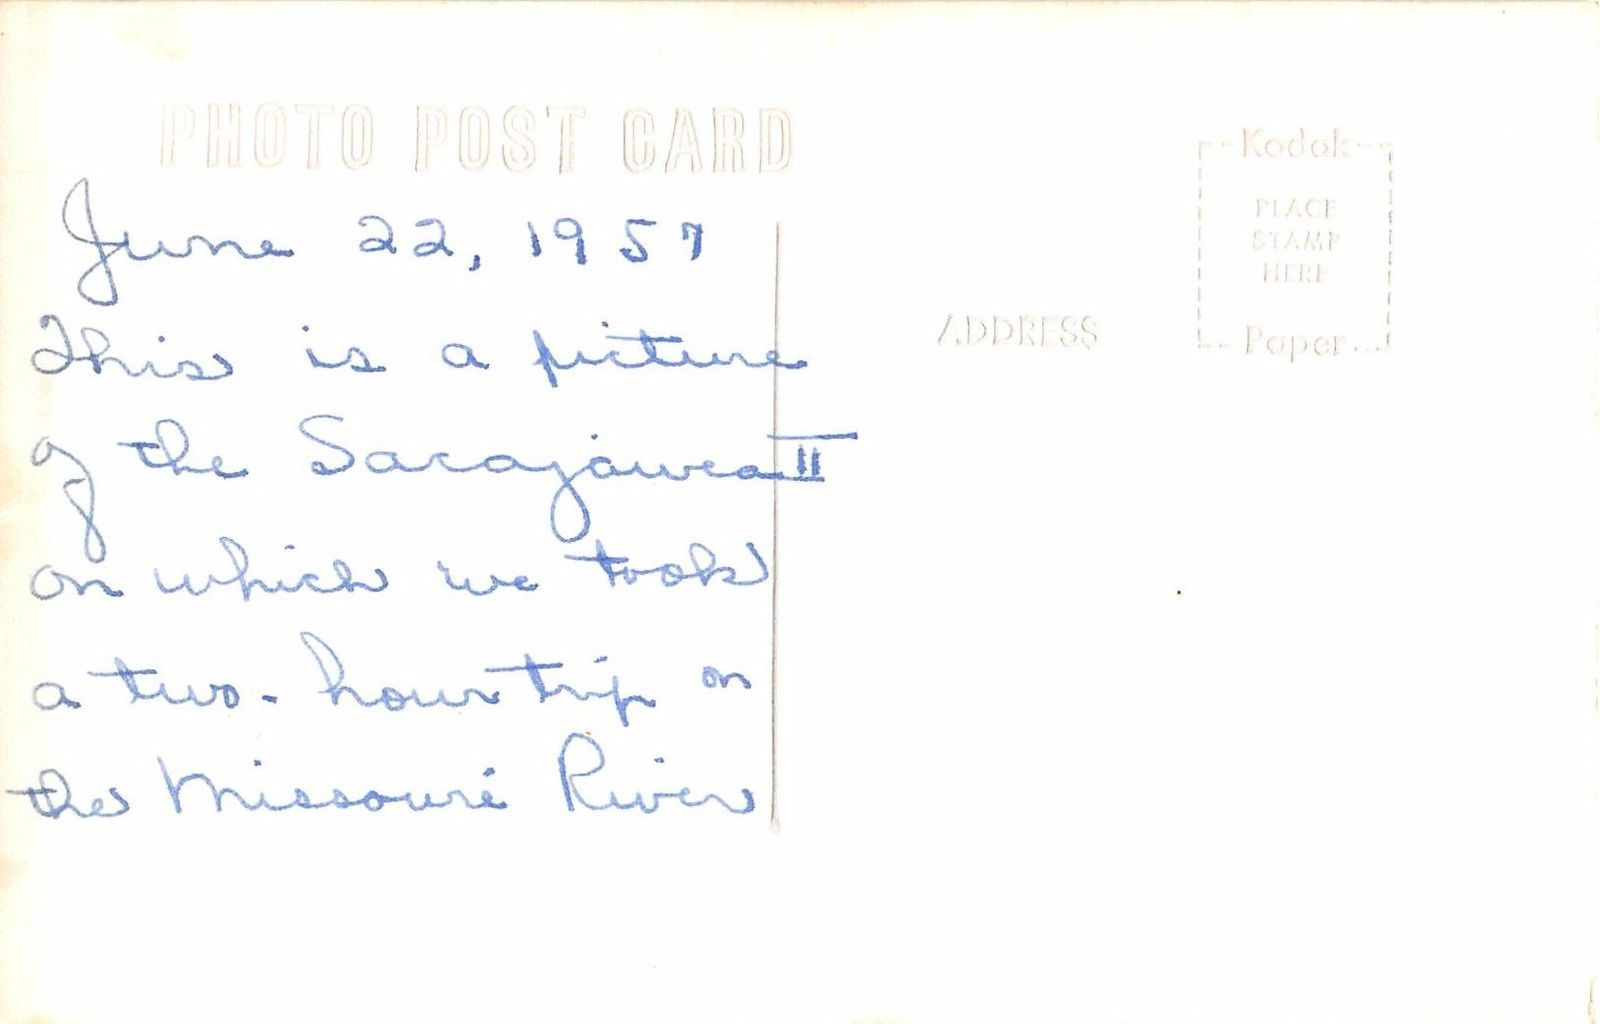 PHOTO POST CARD
Kodak
PLACE
STAMP
HERE
Paper
ADDRESS
June 22, 1957
This is a picture
of the Sacajawea II
on which we took
a two-hour trip on
the Missouri River